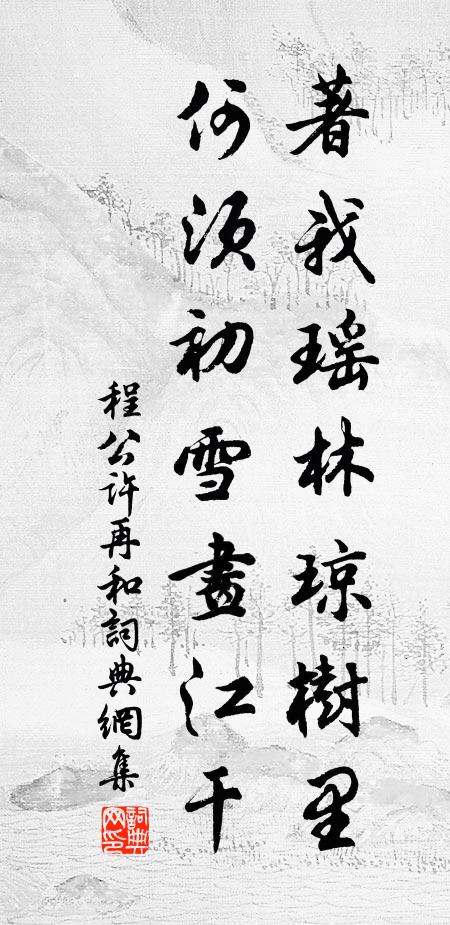 著我瑶林琼樹里
何須初雪畫江干
程公許再和詞典網集
詞典網印